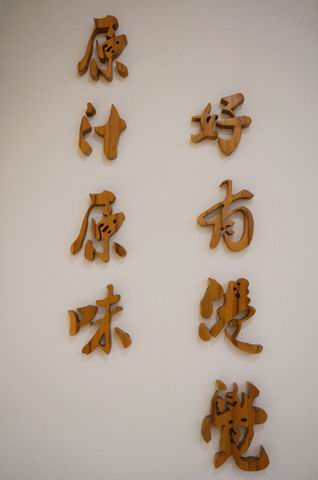 好有覺
原汁原味